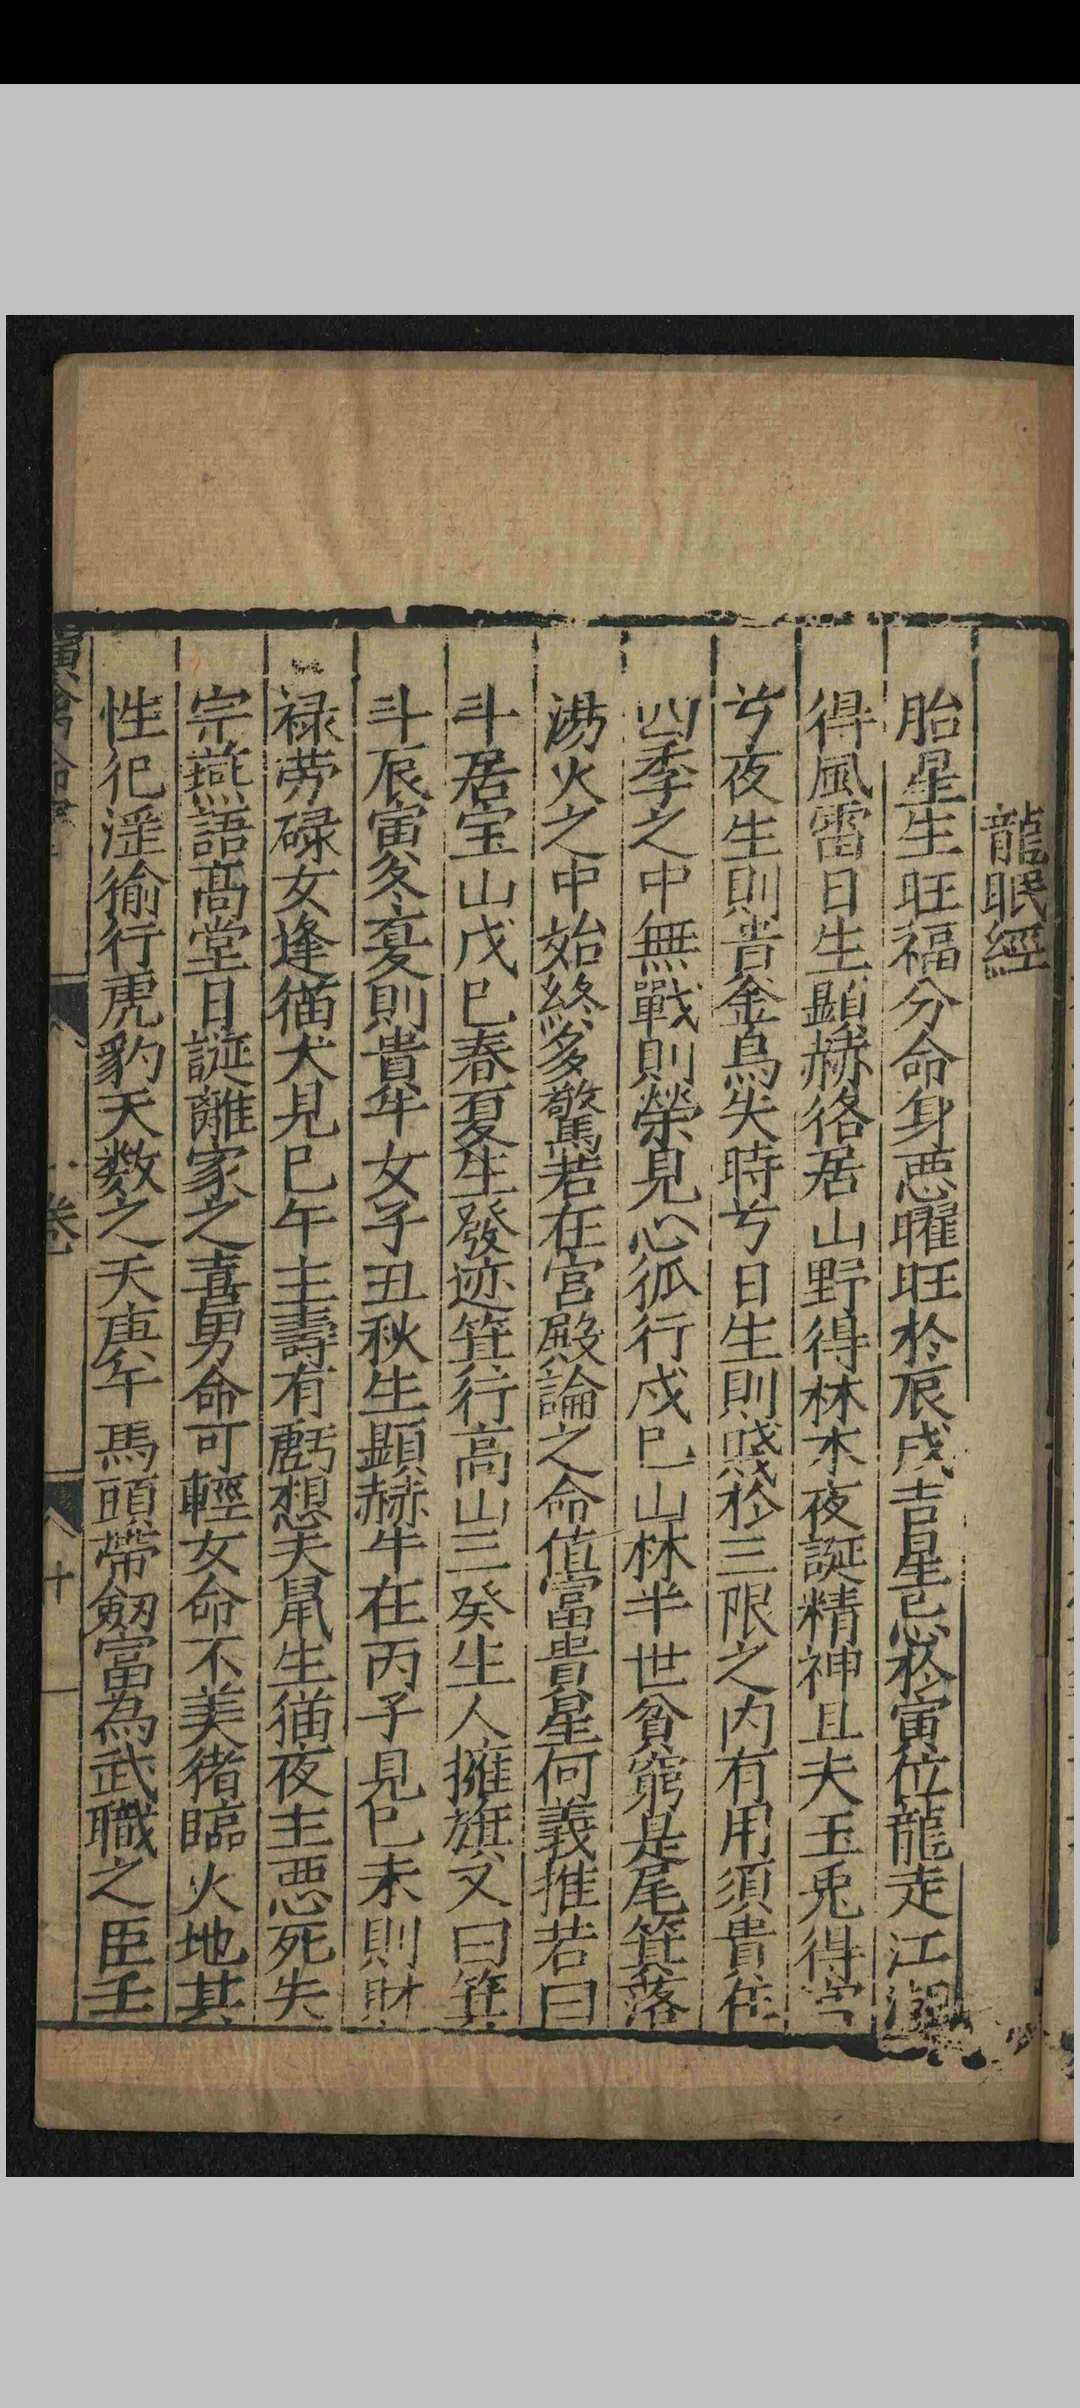 龍眠經
胎星生旺福分命身惡曜旺於辰戌吉星忌於寅位龍走江湖
得風雷日生顯赫狢居山野得林木夜誕精神且夫玉兎得宮
兮夜生則貴金烏失時兮日生則賤於三限之内有用須貴在
四季之中無戰則榮見心狐行戍巳山林半世貧窮是尾箕落
湯火之中始終多驚若在宮殿論之命值富貴星何義推若曰
斗居宝山戊巳春夏生發迹箕行高山三癸生人擁旗又曰箕
斗辰寅冬夏則貴牛女子丑秋生顯赫牛在丙子見巳未則財
禄劳碌女逢猫犬見巳午主壽有虧想夫鼠生猫夜主惡死失
宗燕語高堂日誕離家之喜男命可輕女命不美猪臨火地其
性犯淫偷行虎豹天数之夭庚午馬頭帶劔富為武職之臣壬
卷
十